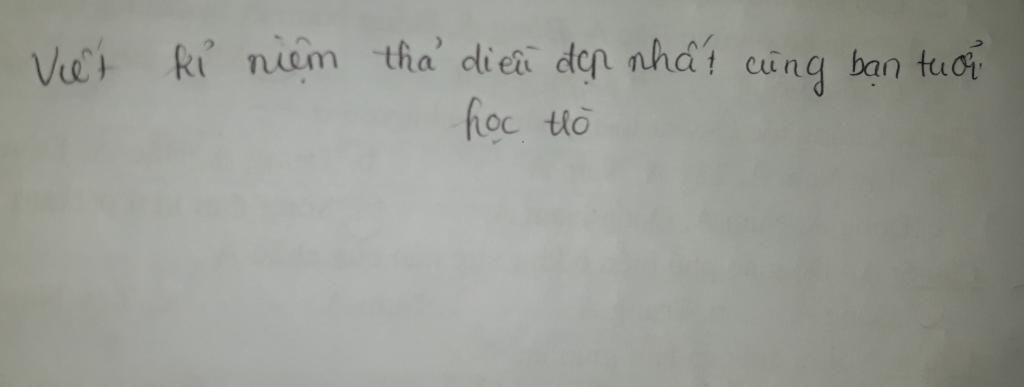 Viết kỉ niệm thả diều đẹp nhất cùng bạn tuổi
học trò